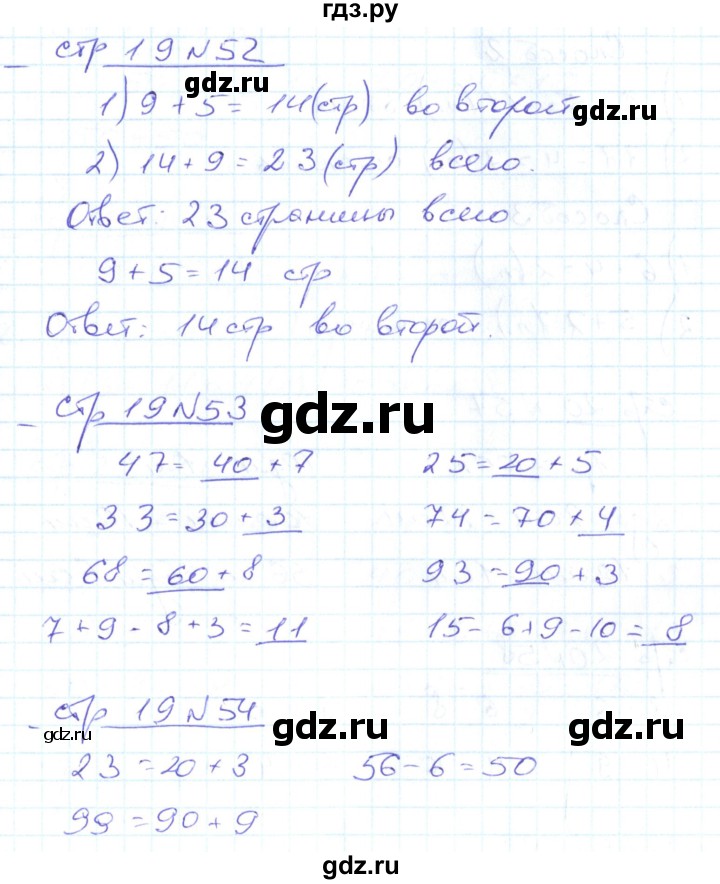 гдз.ру
стр 19 №52
gdz.ru
1) 9+5= 14(стр) во второй
gdz.ru
2) 14+9=23(стр) всего.
Ответ: 23 страницы всего
9+5=14 стр
Ответ: 14 стр во второй.
стр 19 №53
gdz.ru
47= 40 + 7 25=20+5
33=30+3 74=70+4
68=60+8 93=90+3
7+9-8+3=11 15-6+9-10=8
стр 19 №54
gdz.ru gdz.ru gdz.ru
23=20+3 56-6=50
99=90+9
gdz.ru